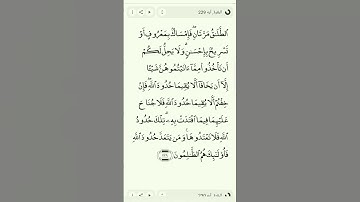 البقرة، آية 229
ٱلطَّلَٰقُ مَرَّتَانِۖ فَإِمۡسَاكُۢ بِمَعۡرُوفٍ أَوۡ
تَسۡرِيحُۢ بِإِحۡسَٰنٖۗ وَلَا يَحِلُّ لَكُمۡ
أَن تَأۡخُذُواْ مِمَّآ ءَاتَيۡتُمُوهُنَّ شَيۡـًٔا
إِلَّآ أَن يَخَافَآ أَلَّا يُقِيمَا حُدُودَ ٱللَّهِۖ فَإِنۡ
خِفۡتُمۡ أَلَّا يُقِيمَا حُدُودَ ٱللَّهِ فَلَا جُنَاحَ
عَلَيۡهِمَا فِيمَا ٱفۡتَدَتۡ بِهِۦۗ تِلۡكَ حُدُودُ
ٱللَّهِ فَلَا تَعۡتَدُوهَاۚ وَمَن يَتَعَدَّ حُدُودَ ٱللَّهِ
فَأُوْلَٰٓئِكَ هُمُ ٱلظَّٰلِمُونَ